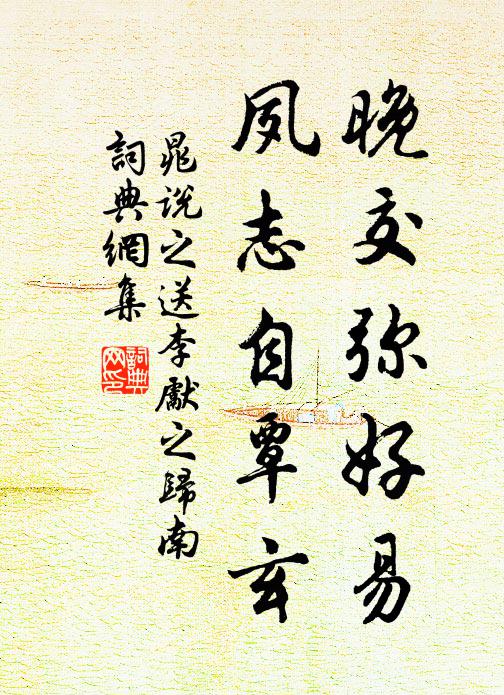 晚交弥好易
夙志自覃玄
晁说之送李獻之歸南
詞典網集
詞典网印